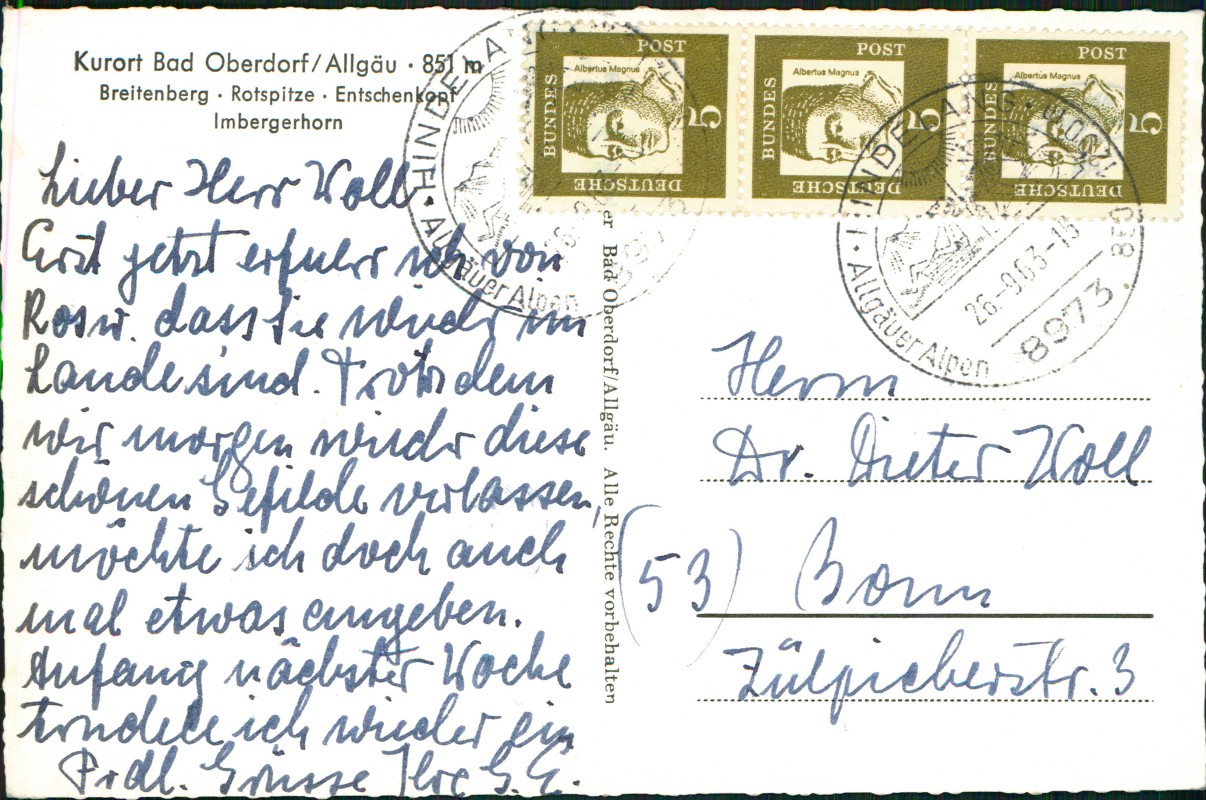 Kurort Bad Oberdorf/Allgäu · 851 m
Breitenberg · Rotspitze · Entschenkopf
Imbergerhorn
Lieber Herr Woll
Erst jetzt erfuhr ich von
Rosw. dass Sie wieder im
Lande sind. Trotzdem
wir morgen wieder diese
schönen Gefilde verlassen,
möchte ich doch auch
mal etwas angeben.
Anfang nächster Woche
trudele ich wieder ein
Frdl. Grüsse Ihre G. E.
Bad Oberdorf/Allgäu. Alle Rechte vorbehalten
POST
Albertus Magnus
5
BUNDES
DEUTSCHE
POST
Albertus Magnus
5
BUNDES
DEUTSCHE
POST
Albertus Magnus
5
BUNDES
DEUTSCHE
Allgäuer Alpen
HINDELANG
26.-9.63
8973
Allgäuer Alpen
Herrn
Dr. Dieter Woll
(53) Bonn
Zülpicherstr. 3